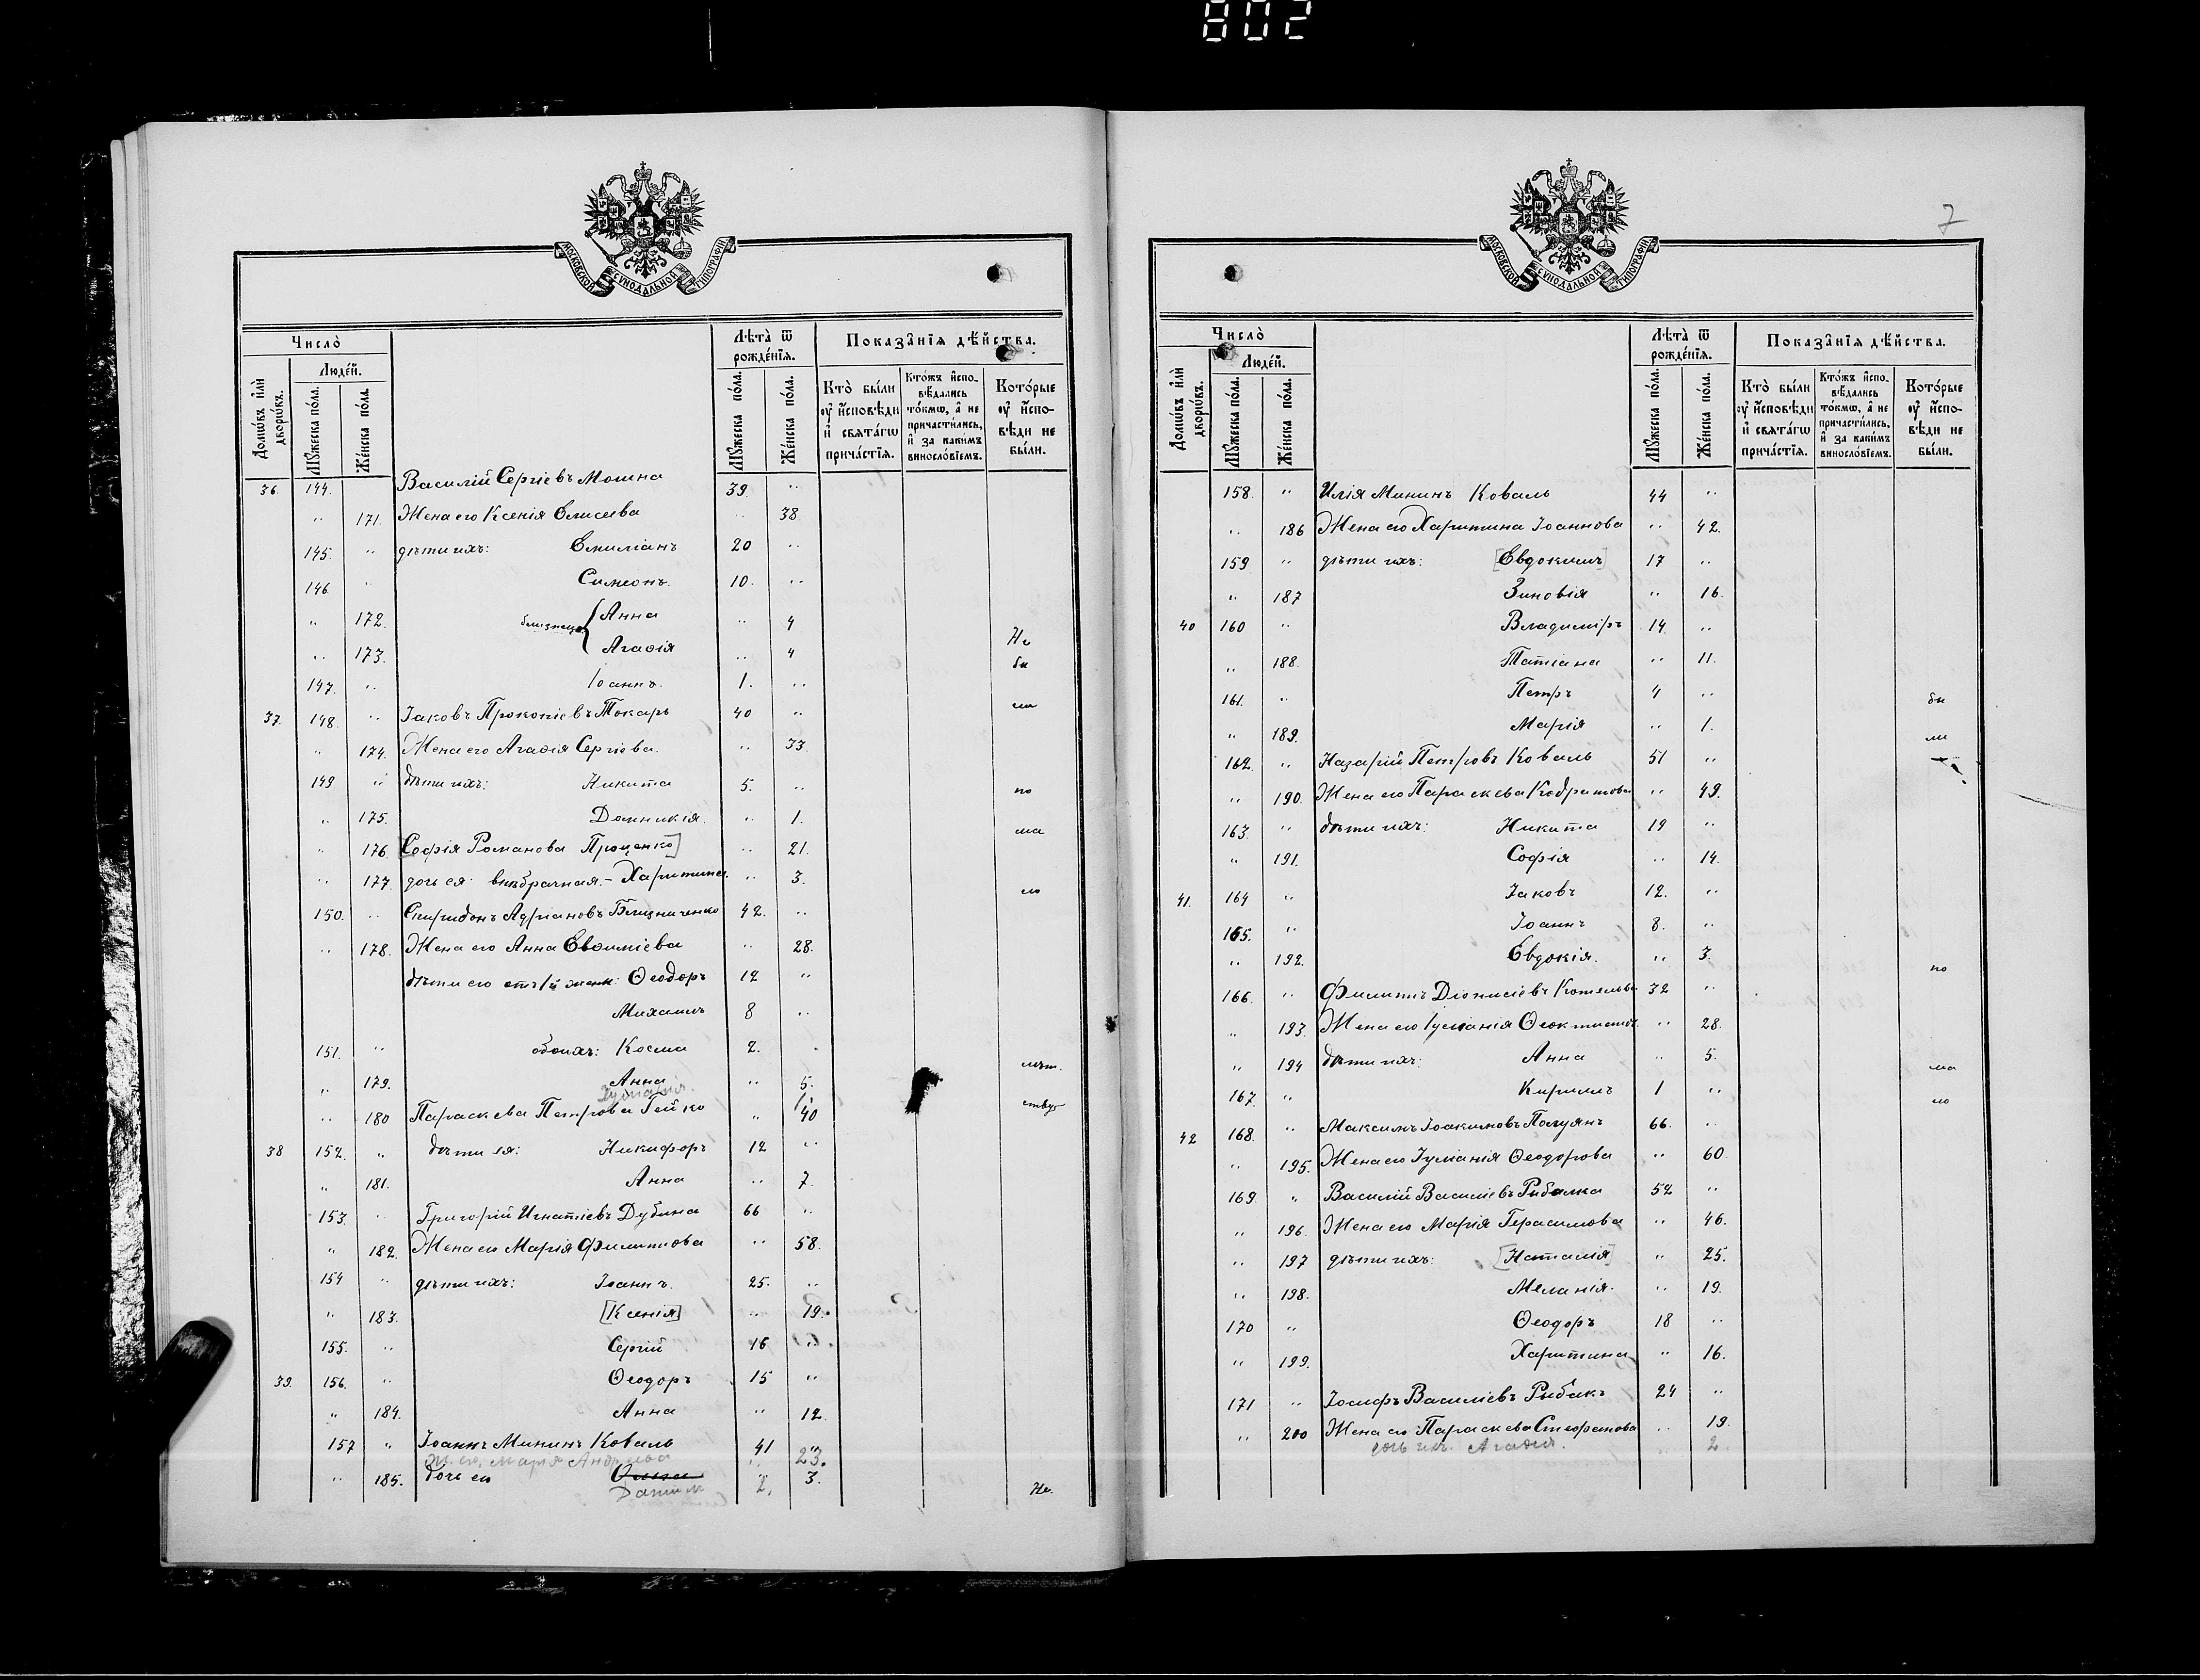 802
МОСКОВСКОЙ СѴНОДАЛЬНОЙ ТИПОГРАФІИ
Число̀
Домѡвъ и҆лѝ дворѡвъ.
Люде́й.
Мꙋ́жеска по́ла.
Же́нска по́ла.
Лѣта̀ ѿ рожде́нїѧ.
Мꙋ́жеска по́ла.
Же́нска по́ла.
Показа̑нїѧ дѣ́йства.
Кто̀ бы́ли ᲂу҆ и҆сповѣди и҆ свѧта́гѡ прича́стїѧ.
Кто́жъ и҆спо-вѣдались то́кмѡ, а҆ не причасти́лись, и҆ за каки́мъ винослові́емъ.
Кото́рые ᲂу҆ и҆спо-вѣди не бы́ли.
36. 144. Василій Сергіевъ Мошна 39. "
" 171. Жена его Ксенія Елисеева " 38
145. " дѣти ихъ: Емиліанъ 20 "
146 " Симеонъ. 10. "
" 172. близнецы Анна " 4
" 173. Агаѳія " 4
147. " Іоаннъ. 1. "
37. 148. " Іаковъ Прокопіевъ Токарь 40 "
" 174. Жена его Агаѳія Сергіева. " 33.
149 " дѣти ихъ: Никита 5. "
" 175. Домникія. " 1.
" 176. [Софія Романова Проценко] " 21.
" 177. дочь ея внѣбрачная.- Харитина. " 3.
150. " Спиридонъ Адріановъ Близниченко 42. "
" 178. Жена его Анна Евѳиміева " 28.
дѣти его отъ 1й жены: Ѳеодоръ 12 "
Михаилъ 8 "
151. " обоихъ: Косма 2.
" 179. Анна " 5.
Іуліанія. 1.
" 180 Параскева Петрова Гейко " 40
38 152. " дѣти ея: Никифоръ 12 "
" 181. Анна " 7.
153. " Григорій Игнатіевъ Дубина 66 "
" 182. Жена его Марія Филиппова " 58.
154 " дѣти ихъ: Іоаннъ. 25. "
" 183. [Ксенія] " 19.
155. " Сергій 16 "
39. 156. " Ѳеодоръ 15 "
" 184. Анна " 12.
157 " Іоаннъ Мининъ Коваль 41 "
Ж. его, Марія Андреева " 23.
" 185. дочь его Ольга " 3.
Даніилъ 2.
Не бы ли по ма ло лѣт. ству
Не.
7
МОСКОВСКОЙ СѴНОДАЛЬНОЙ ТИПОГРАФІИ
Число̀
Домѡвъ и҆лѝ дворѡвъ.
Люде́й.
Мꙋ́жеска по́ла.
Же́нска по́ла.
Лѣта̀ ѿ рожде́нїѧ.
Мꙋ́жеска по́ла.
Же́нска по́ла.
Показа̑нїѧ дѣ́йства.
Кто̀ бы́ли ᲂу҆ и҆сповѣди и҆ свѧта́гѡ прича́стїѧ.
Кто́жъ и҆спо-вѣдались то́кмѡ, а҆ не причасти́лись, и҆ за каки́мъ винослові́емъ.
Кото́рые ᲂу҆ и҆спо-вѣди не бы́ли.
158. " Илія Мининъ Коваль 44 "
" 186 Жена его Харитина Іоаннова " 42.
159 " дѣти ихъ: [Евдокимъ] 17 "
" 187 Зиновія " 16.
40 160 " Владиміръ 14. "
" 188. Татіана " 11.
161. " Петръ 4 "
" 189. Марія " 1.
162. " Назарій Петровъ Коваль 51 "
" 190. Жена его Параскева Кодратова " 49.
163. " дѣти ихъ: Никита 19 "
" 191. Софія " 14.
41. 164 " Іаковъ 12. "
165. " Іоаннъ 8. "
" 192. Евдокія. " 3.
166. " Филиппъ Діонисіевъ Котельва 32 "
" 193. Жена его Іуліанія Ѳеоктистов. " 28.
" 194 дѣти ихъ: Анна " 5.
167. " Кириллъ 1 "
42 168. " Максимъ Іоакимовъ Полуянъ 66. "
" 195. Жена его Іуліанія Ѳеодорова " 60.
169. " Василій Василіевъ Рыбалка 52 "
" 196. Жена его Марія Герасимова " 46.
" 197 дѣти ихъ: [Наталія] " 25.
" 198. Меланія. " 19.
170 " Ѳеодоръ 18 "
" 199. Харитина " 16.
171 " Іосифъ Василіевъ Рыбакъ 24 "
" 200 Жена его Параскева Стефанова " 19.
дочь ихъ. Агаѳія. " 2
бы ли по ма ло